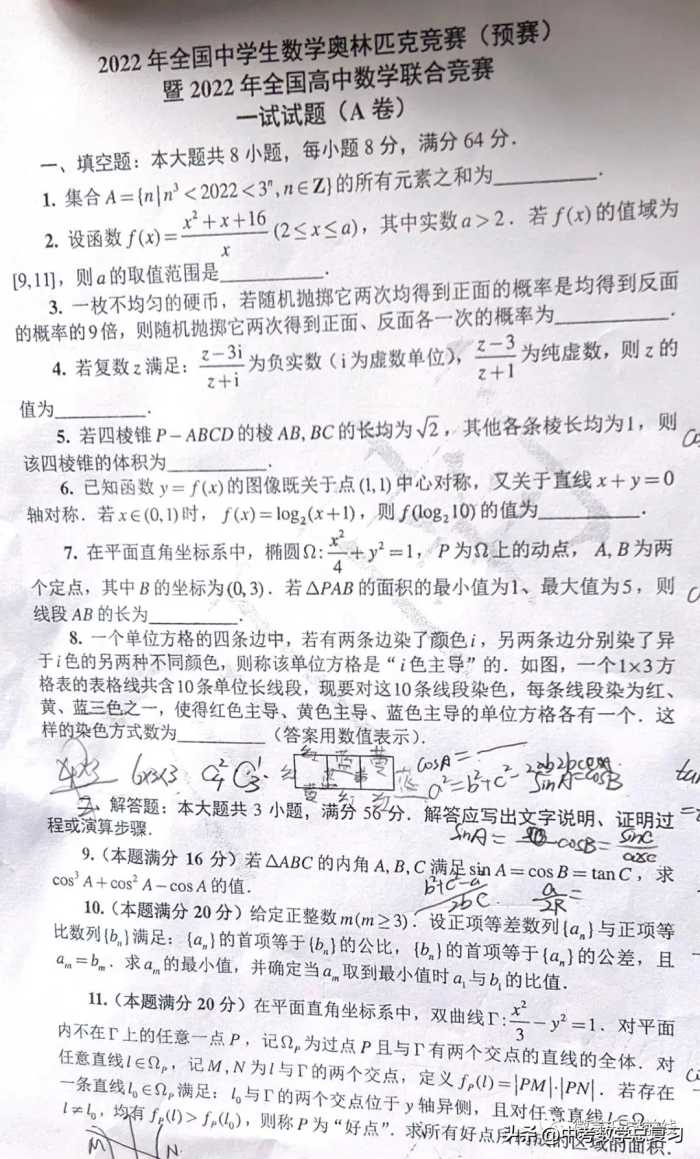 2022 年全国中学生数学奥林匹克竞赛（预赛）
暨 2022 年全国高中数学联合竞赛
一试试题（A 卷）
一、填空题：本大题共 8 小题，每小题 8 分，满分 64 分．
1. 集合 A={n|n³<2022<3ⁿ,n∈Z}的所有元素之和为________．
2. 设函数 f(x)=(x²+x+16)/x (2≤x≤a)，其中实数 a>2．若 f(x) 的值域为
[9,11]，则 a 的取值范围是________．
3. 一枚不均匀的硬币，若随机抛掷它两次均得到正面的概率是均得到反面
的概率的 9 倍，则随机抛掷它两次得到正面、反面各一次的概率为________．
4. 若复数 z 满足：(z−3i)/(z+i) 为负实数（i 为虚数单位），(z−3)/(z+1) 为纯虚数，则 z 的
值为________．
5. 若四棱锥 P−ABCD 的棱 AB, BC 的长均为√2，其他各条棱长均为1，则
该四棱锥的体积为________．
6. 已知函数 y=f(x) 的图像既关于点(1,1) 中心对称，又关于直线 x+y=0
轴对称．若 x∈(0,1) 时，f(x)=log₂(x+1)，则 f(log₂10) 的值为________．
7. 在平面直角坐标系中，椭圆Ω:x²/4+y²=1，P 为Ω上的动点，A, B 为两
个定点，其中 B 的坐标为(0,3)．若△PAB 的面积的最小值为1、最大值为5，则
线段 AB 的长为________．
8. 一个单位方格的四条边中，若有两条边染了颜色 i，另两条边分别染了异
于 i 色的另两种不同颜色，则称该单位方格是“i 色主导”的．如图，一个1×3 方
格表的表格线共含10 条单位长线段，现要对这10 条线段染色，每条线段染为红、
黄、蓝三色之一，使得红色主导、黄色主导、蓝色主导的单位方格各有一个．这
样的染色方式数为________（答案用数值表示）．
6×3×3
红 蓝 黄
cosA=
a²=b²+c²−
二、解答题：本大题共 3 小题，满分 56 分．解答应写出文字说明、证明过
程或演算步骤．
sinA=
cosB=
9.（本题满分 16 分）若△ABC 的内角 A, B, C 满足 sin A=cos B=tan C，求
cos³A+cos²A−cos A 的值．
a/2R=
10.（本题满分 20 分）给定正整数 m(m≥3)．设正项等差数列{aₙ}与正项等
比数列{bₙ}满足：{aₙ}的首项等于{bₙ}的公比，{bₙ}的首项等于{aₙ}的公差，且
aₘ=bₘ．求 aₘ的最小值，并确定当 aₘ取到最小值时 a₁与 b₁的比值．
11.（本题满分 20 分）在平面直角坐标系中，双曲线Γ:x²/3−y²=1．对平面
内不在Γ上的任意一点 P，记Ω_P为过点 P 且与Γ有两个交点的直线的全体．对
任意直线 l∈Ω_P，记 M, N 为 l 与Γ的两个交点，定义 f_P(l)=|PM|·|PN|．若存在
一条直线 l₀∈Ω_P满足：l₀与Γ的两个交点位于 y 轴异侧，且对任意直线 l∈Ω_P，
l≠l₀，均有 f_P(l)>f_P(l₀)，则称 P 为“好点”．求所有好点所构成的区域的面积．
M N
头条@中考数学总复习